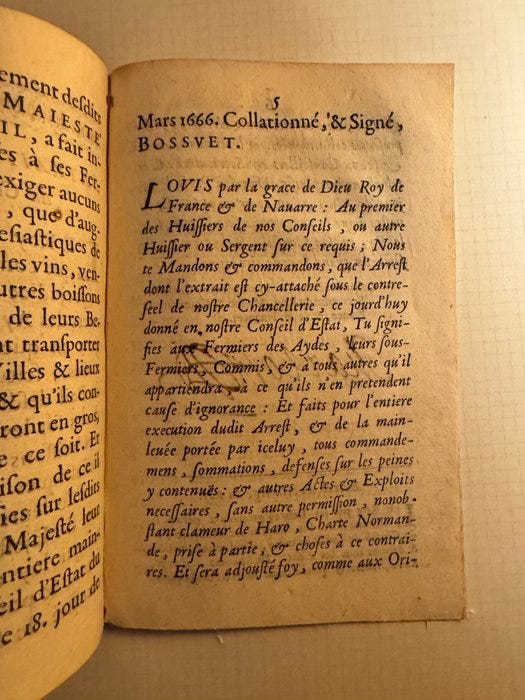 ement desdits
MAIESTÉ
IL, a fait in-
es à ses Fer-
exiger aucuns
, que d'aug-
esiastiques de
les vins, ven-
utres boissons
de leurs Be-
nt transporter
Villes & lieux
& qu'ils con-
ront en gros,
e ce soit. Et
ison de ce il
ies sur lesdits
Majesté leur
ntiere main-
eil d'Estat du
e 18. jour de
5
Mars 1666. Collationné, & Signé,
BOSSVET.
LOVIS par la grace de Dieu Roy de
France & de Nauarre : Au premier
des Huissiers de nos Conseils, ou autre
Huissier ou Sergent sur ce requis ; Nous
te Mandons & commandons, que l'Arrest
dont l'extrait est cy-attaché sous le contre-
seel de nostre Chancellerie, ce jourd'huy
donné en nostre Conseil d'Estat, Tu signi-
fies aux Fermiers des Aydes, leurs sous-
Fermiers, Commis, & à tous autres qu'il
appartiendra, à ce qu'ils n'en pretendent
cause d'ignorance : Et faits pour l'entiere
execution dudit Arrest, & de la main-
leuée portée par iceluy, tous commande-
mens, sommations, defenses sur les peines
y contenuës : & autres Actes & Exploits
necessaires, sans autre permission, nonob-
stant clameur de Haro, Charte Norman-
de, prise à partie, & choses à ce contrai-
res. Et sera adjousté foy, comme aux Ori-